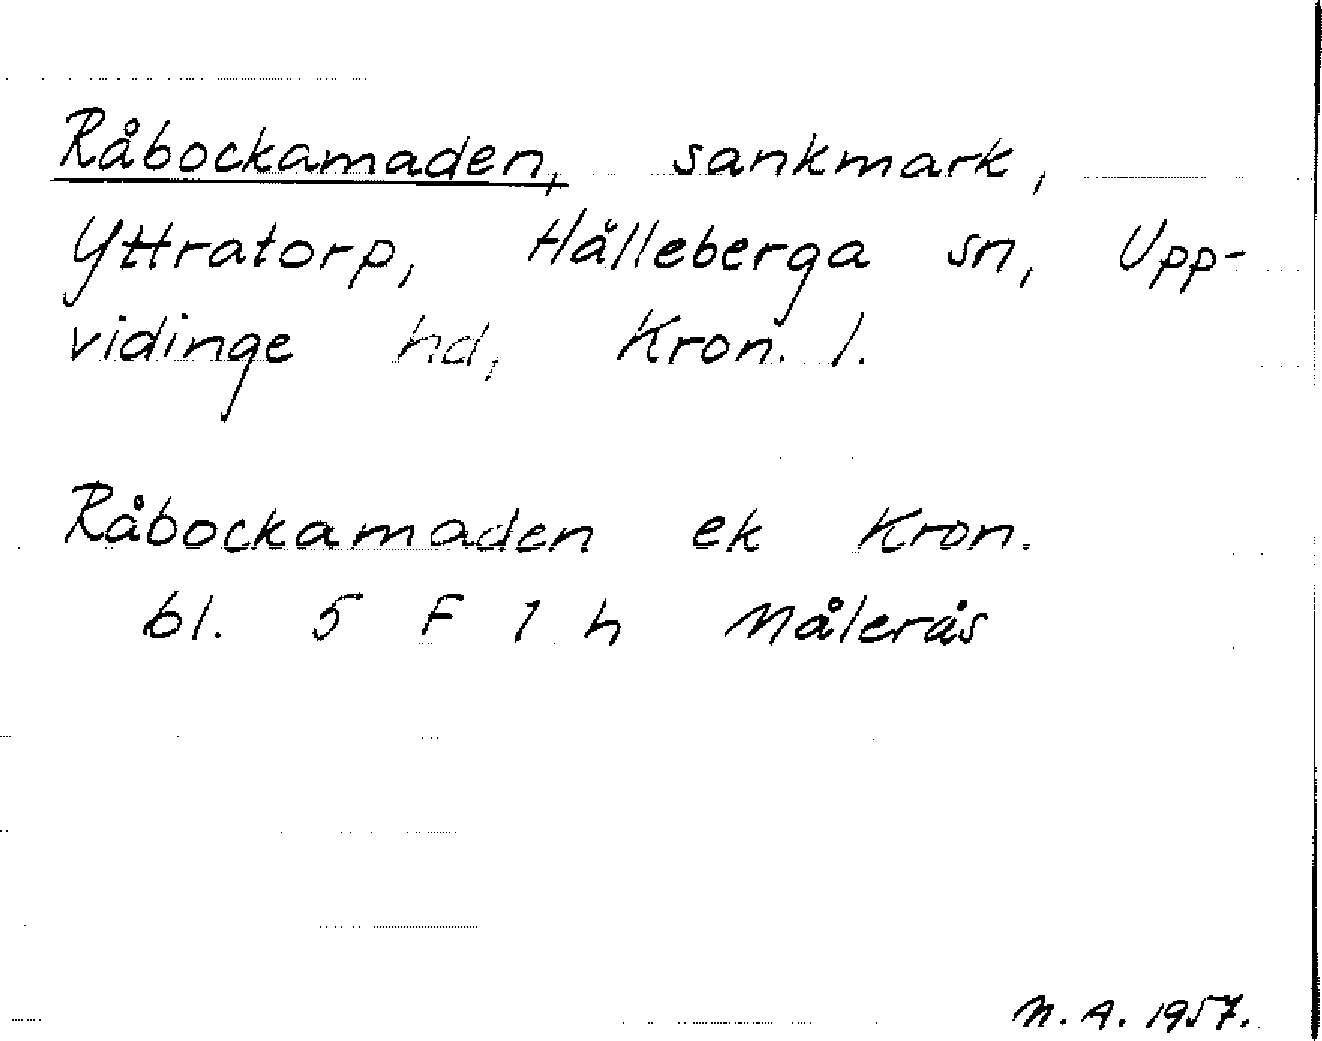 Råbockamaden, sankmark,
Yttratorp, Hälleberga sn, Upp-
vidinge hd, Kron. l.
Råbockamaden ek Kron.
bl. 5 F 1 h Målerås
M. A. 1957.